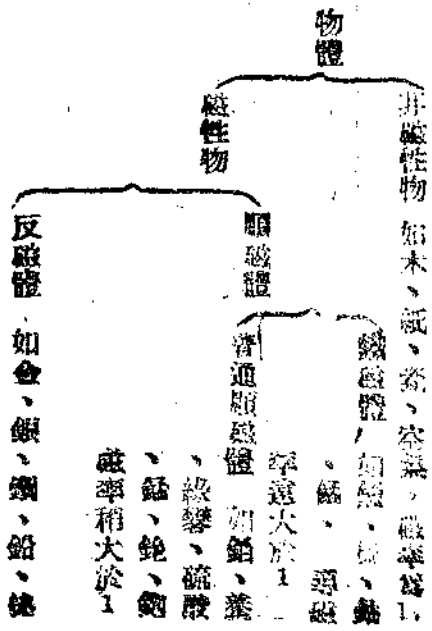 物體
非磁性物 如木、紙、瓷、空氣，磁率為1.
磁性物
順磁體
鐵磁體 如鐵、鎳、鈷
、錳、導磁
率遠大於1
普通順磁體 如鉑、養
、綠礬、硫酸
、錳、鉋、釹
磁率稍大於1
反磁體 如金、銀、銅、鉛、鉍